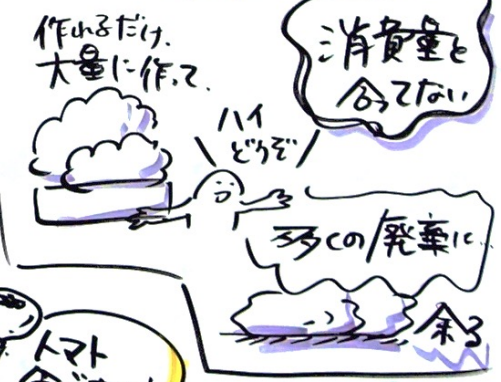 作れるだけ、
大量に作って、
消費量と
合ってない
ハイ
どうぞ
多くの廃棄に…
余る
トマト